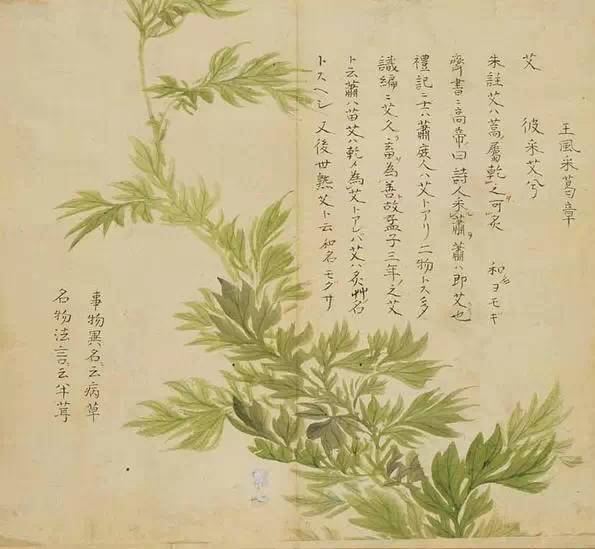 王風采葛章
艾　彼采艾兮
朱註艾ハ蒿屬乾之可灸　和名ヨモギ
齊書ニ高帝曰詩人采蕭蕭ハ即艾也
禮記ニ士ハ蕭庶人ハ艾トアリ二物トスタ
識編ニ艾久畜為善故孟子三年之艾
ト云蕭ハ苗艾ハ乾メ為艾トアレバ艾ハ灸艸名
トスヘシ　又後世熟艾ト云和名モグサ
事物異名ニ云病草
名物法言ニ云半茸